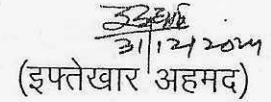 31/12/2024
(इफ्तेखार अहमद)